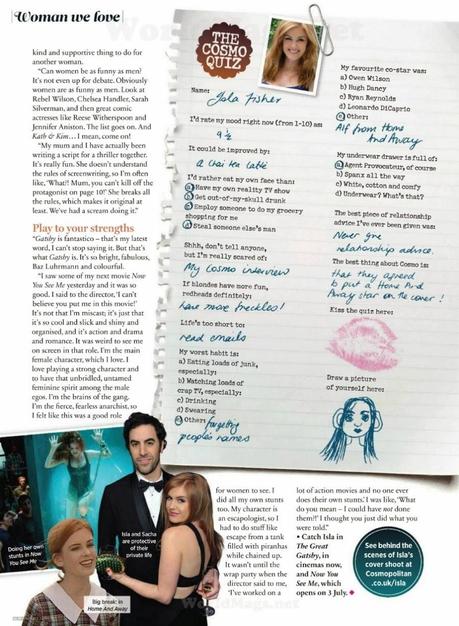 Woman we love
kind and supportive thing to do for
another woman.
"Can women be as funny as men?
It's not even up for debate. Obviously
women are as funny as men. Look at
Rebel Wilson, Chelsea Handler, Sarah
Silverman, and then great comic
actresses like Reese Witherspoon and
Jennifer Aniston. The list goes on. And
Kath & Kim… I mean, come on!
"My mum and I have actually been
writing a script for a thriller together.
It's really fun. She doesn't understand
the rules of screenwriting, so I'm often
like, 'What!! Mum, you can't kill off the
protagonist on page 10!' She breaks all
the rules, which makes it original at
least. We've had a scream doing it."
Play to your strengths
"Gatsby is fantastico – that's my latest
word, I can't stop saying it. But that's
what Gatsby is. It's so bright, fabulous,
Baz Luhrmann and colourful.
"I saw some of my next movie Now
You See Me yesterday and it was so
good. I said to the director, 'I can't
believe you put me in this movie!'
It's not that I'm miscast; it's just that
it's so cool and slick and shiny and
organised, and it's action and drama
and romance. It was weird to see me
on screen in that role. I'm the main
female character, which I love. I
love playing a strong character and
to have that unbridled, untamed
feminine spirit among the male
egos. I'm the brains of the gang.
I'm the fierce, fearless anarchist, so
I felt like this was a good role
THE
COSMO
QUIZ
Name:
Isla Fisher
I'd rate my mood right now (from 1-10) as:
9 ½
It could be improved by:
a chai tea latte
I'd rather eat my own face than:
a) Have my own reality TV show
b) Get out-of-my-skull drunk
c) Employ someone to do my grocery
shopping for me
d) Steal someone else's man
Shhh, don't tell anyone,
but I'm really scared of:
My Cosmo interview
If blondes have more fun,
redheads definitely:
have more freckles!
Life's too short to:
read emails
My worst habit is:
a) Eating loads of junk,
especially:
b) Watching loads of
crap TV, especially:
c) Drinking
d) Swearing
e) Other: forgetting
people's names
My favourite co-star was:
a) Owen Wilson
b) Hugh Dancy
c) Ryan Reynolds
d) Leonardo DiCaprio
e) Other:
Alf from Home
And Away
My underwear drawer is full of:
a) Agent Provocateur, of course
b) Spanx all the way
c) White, cotton and comfy
d) Underwear? What's that?
The best piece of relationship
advice I've ever been given was:
Never give
relationship advice.
The best thing about Cosmo is:
that they agreed
to put a Home And
Away star on the cover!
Kiss the quiz here:
Draw a picture
of yourself here:
Doing her own
stunts in Now
You See Me
Isla and Sacha
are protective of
their private life
Big break: in
Home And Away
for women to see. I
did all my own stunts
too. My character is
an escapologist, so I
had to do stuff like
escape from a tank
filled with piranhas
while chained up.
It wasn't until the
wrap party when the
director said to me,
'I've worked on a
lot of action movies and no one ever
does their own stunts'. I was like, 'What
do you mean – I could have not done
them?!' I thought you just did what you
were told."
• Catch Isla in
The Great
Gatsby, in
cinemas now,
and Now You
See Me, which
opens on 3 July.
See behind the
scenes of Isla's
cover shoot at
Cosmopolitan
.co.uk/isla
WorldMags.net
WorldMags.net